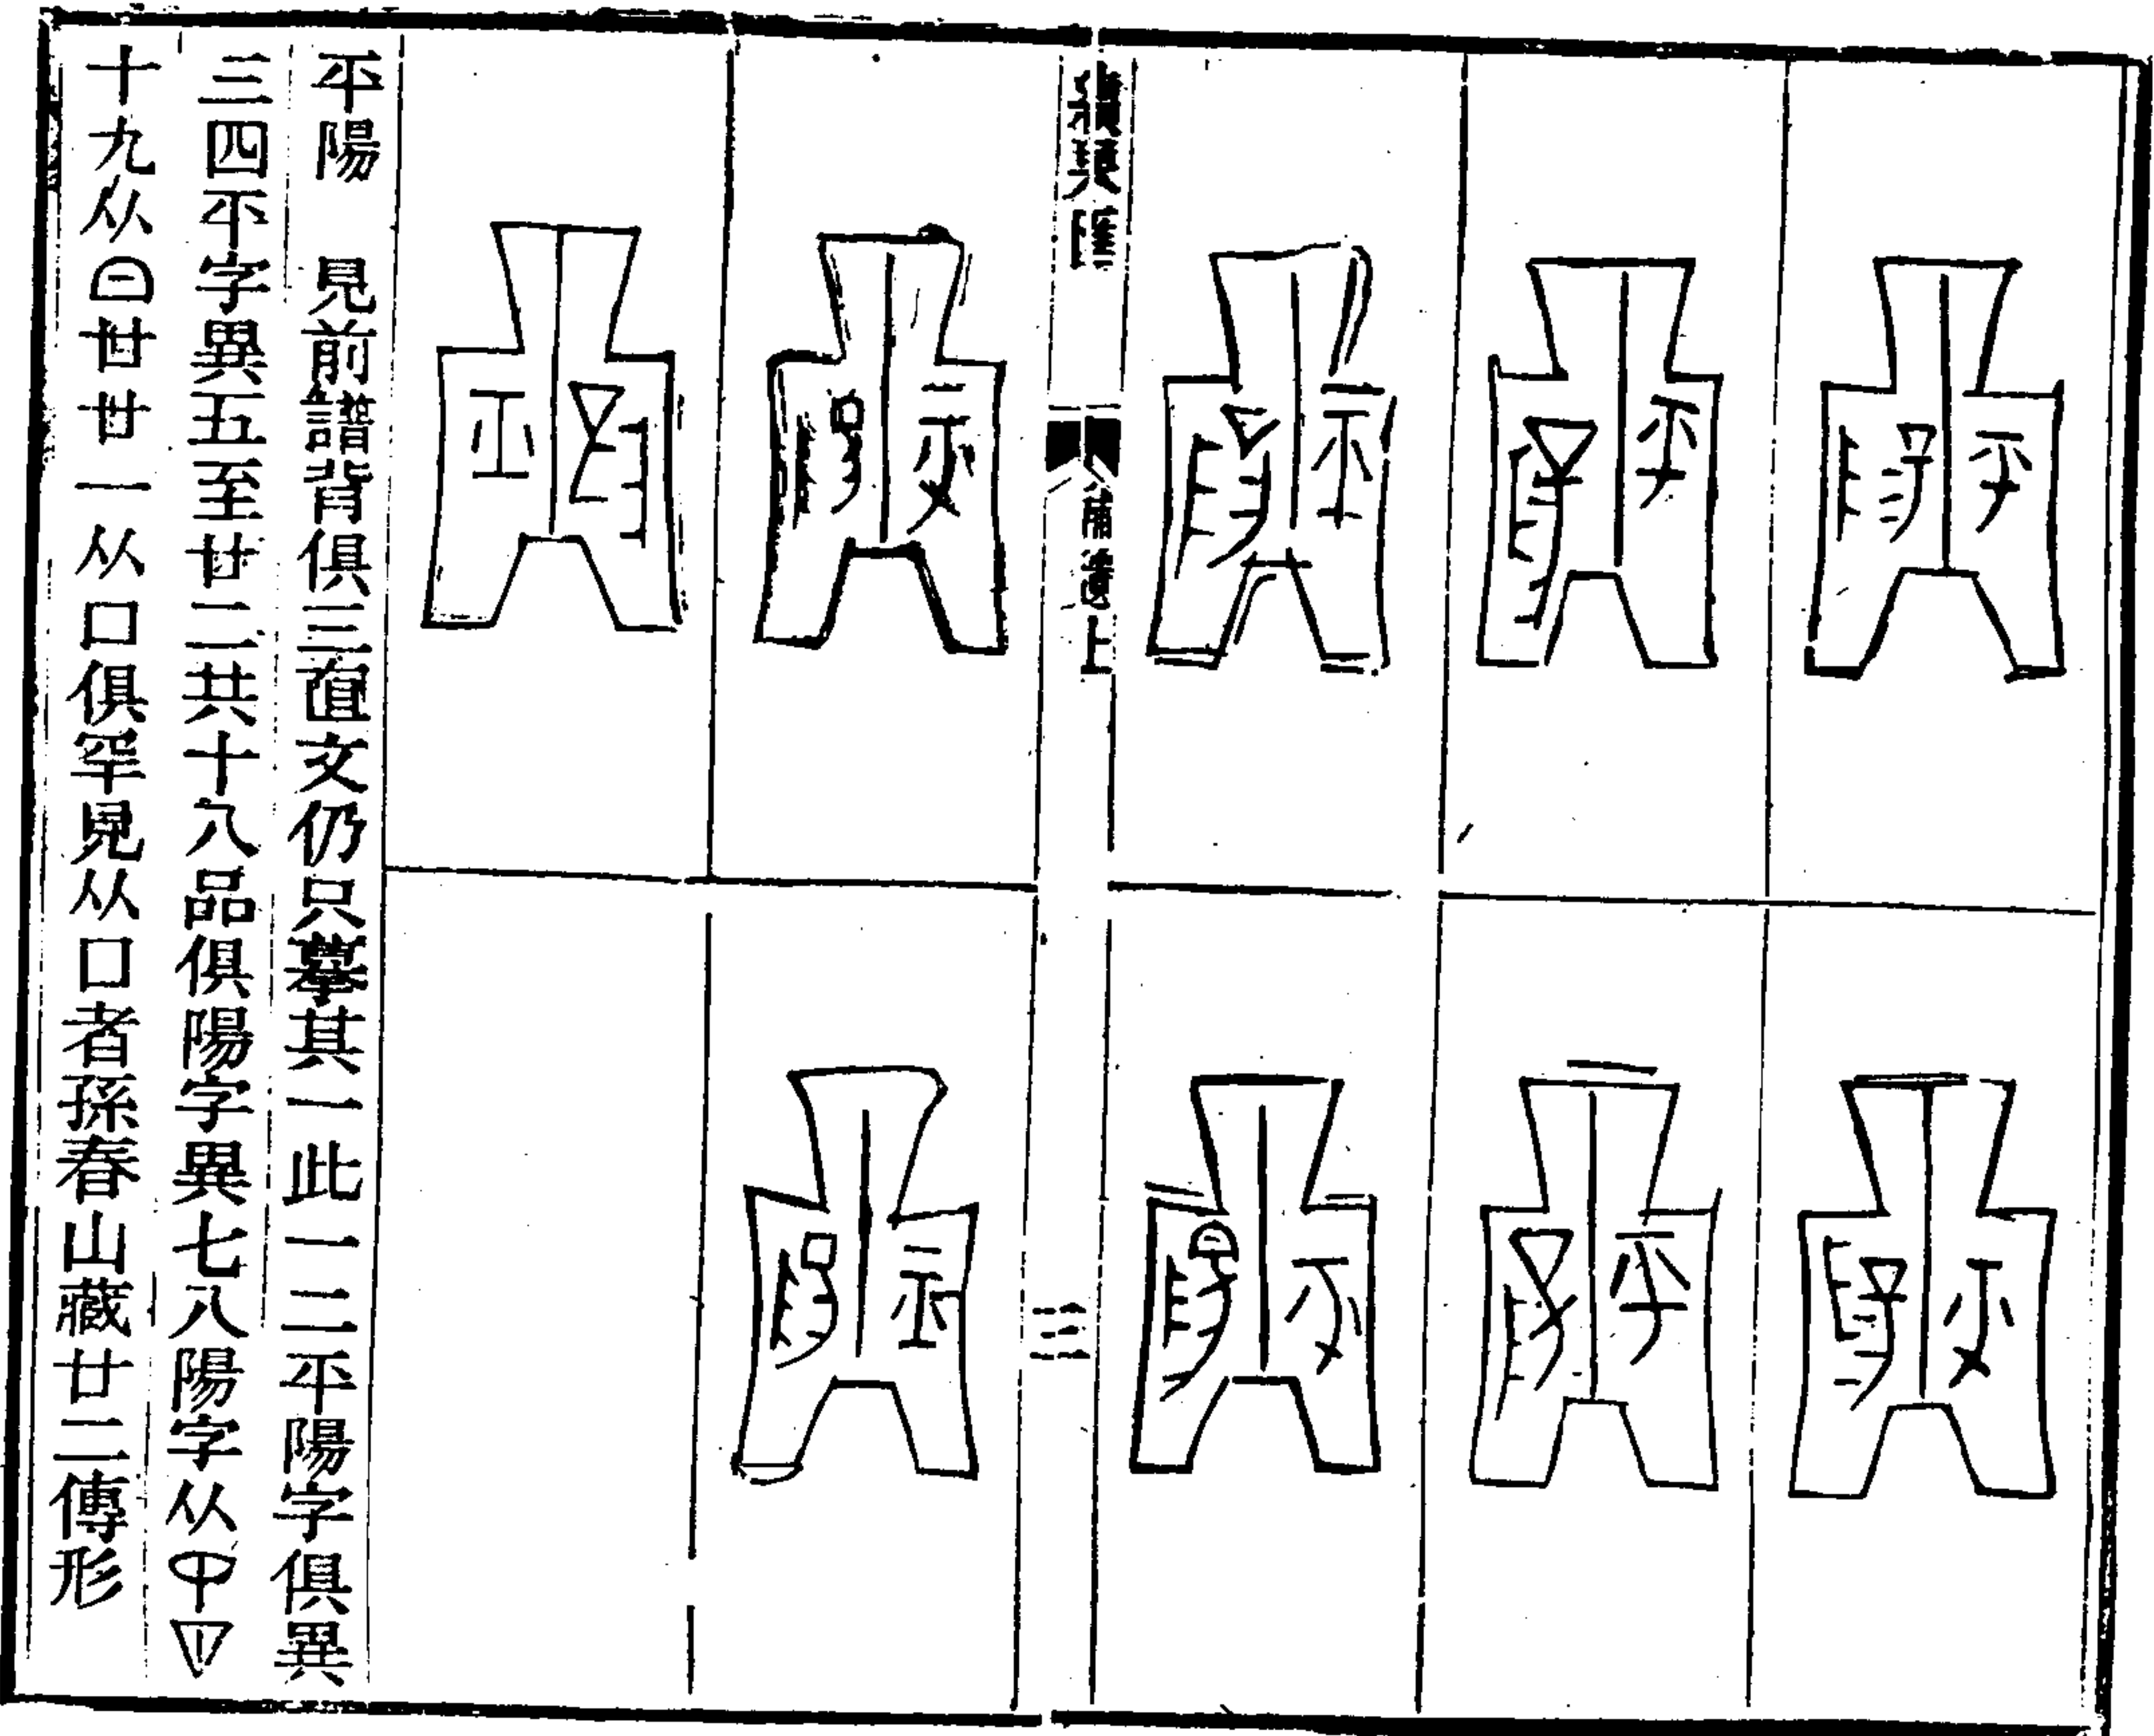 續泉匯
補遺上
三
平陽 見前譜背俱三直文仍只摹其一此一二平陽字俱異
三四平字異五至廿二共十八品俱陽字異七八陽字从
十九从廿廿一从口俱罕見从口者孫春山藏廿二傳形